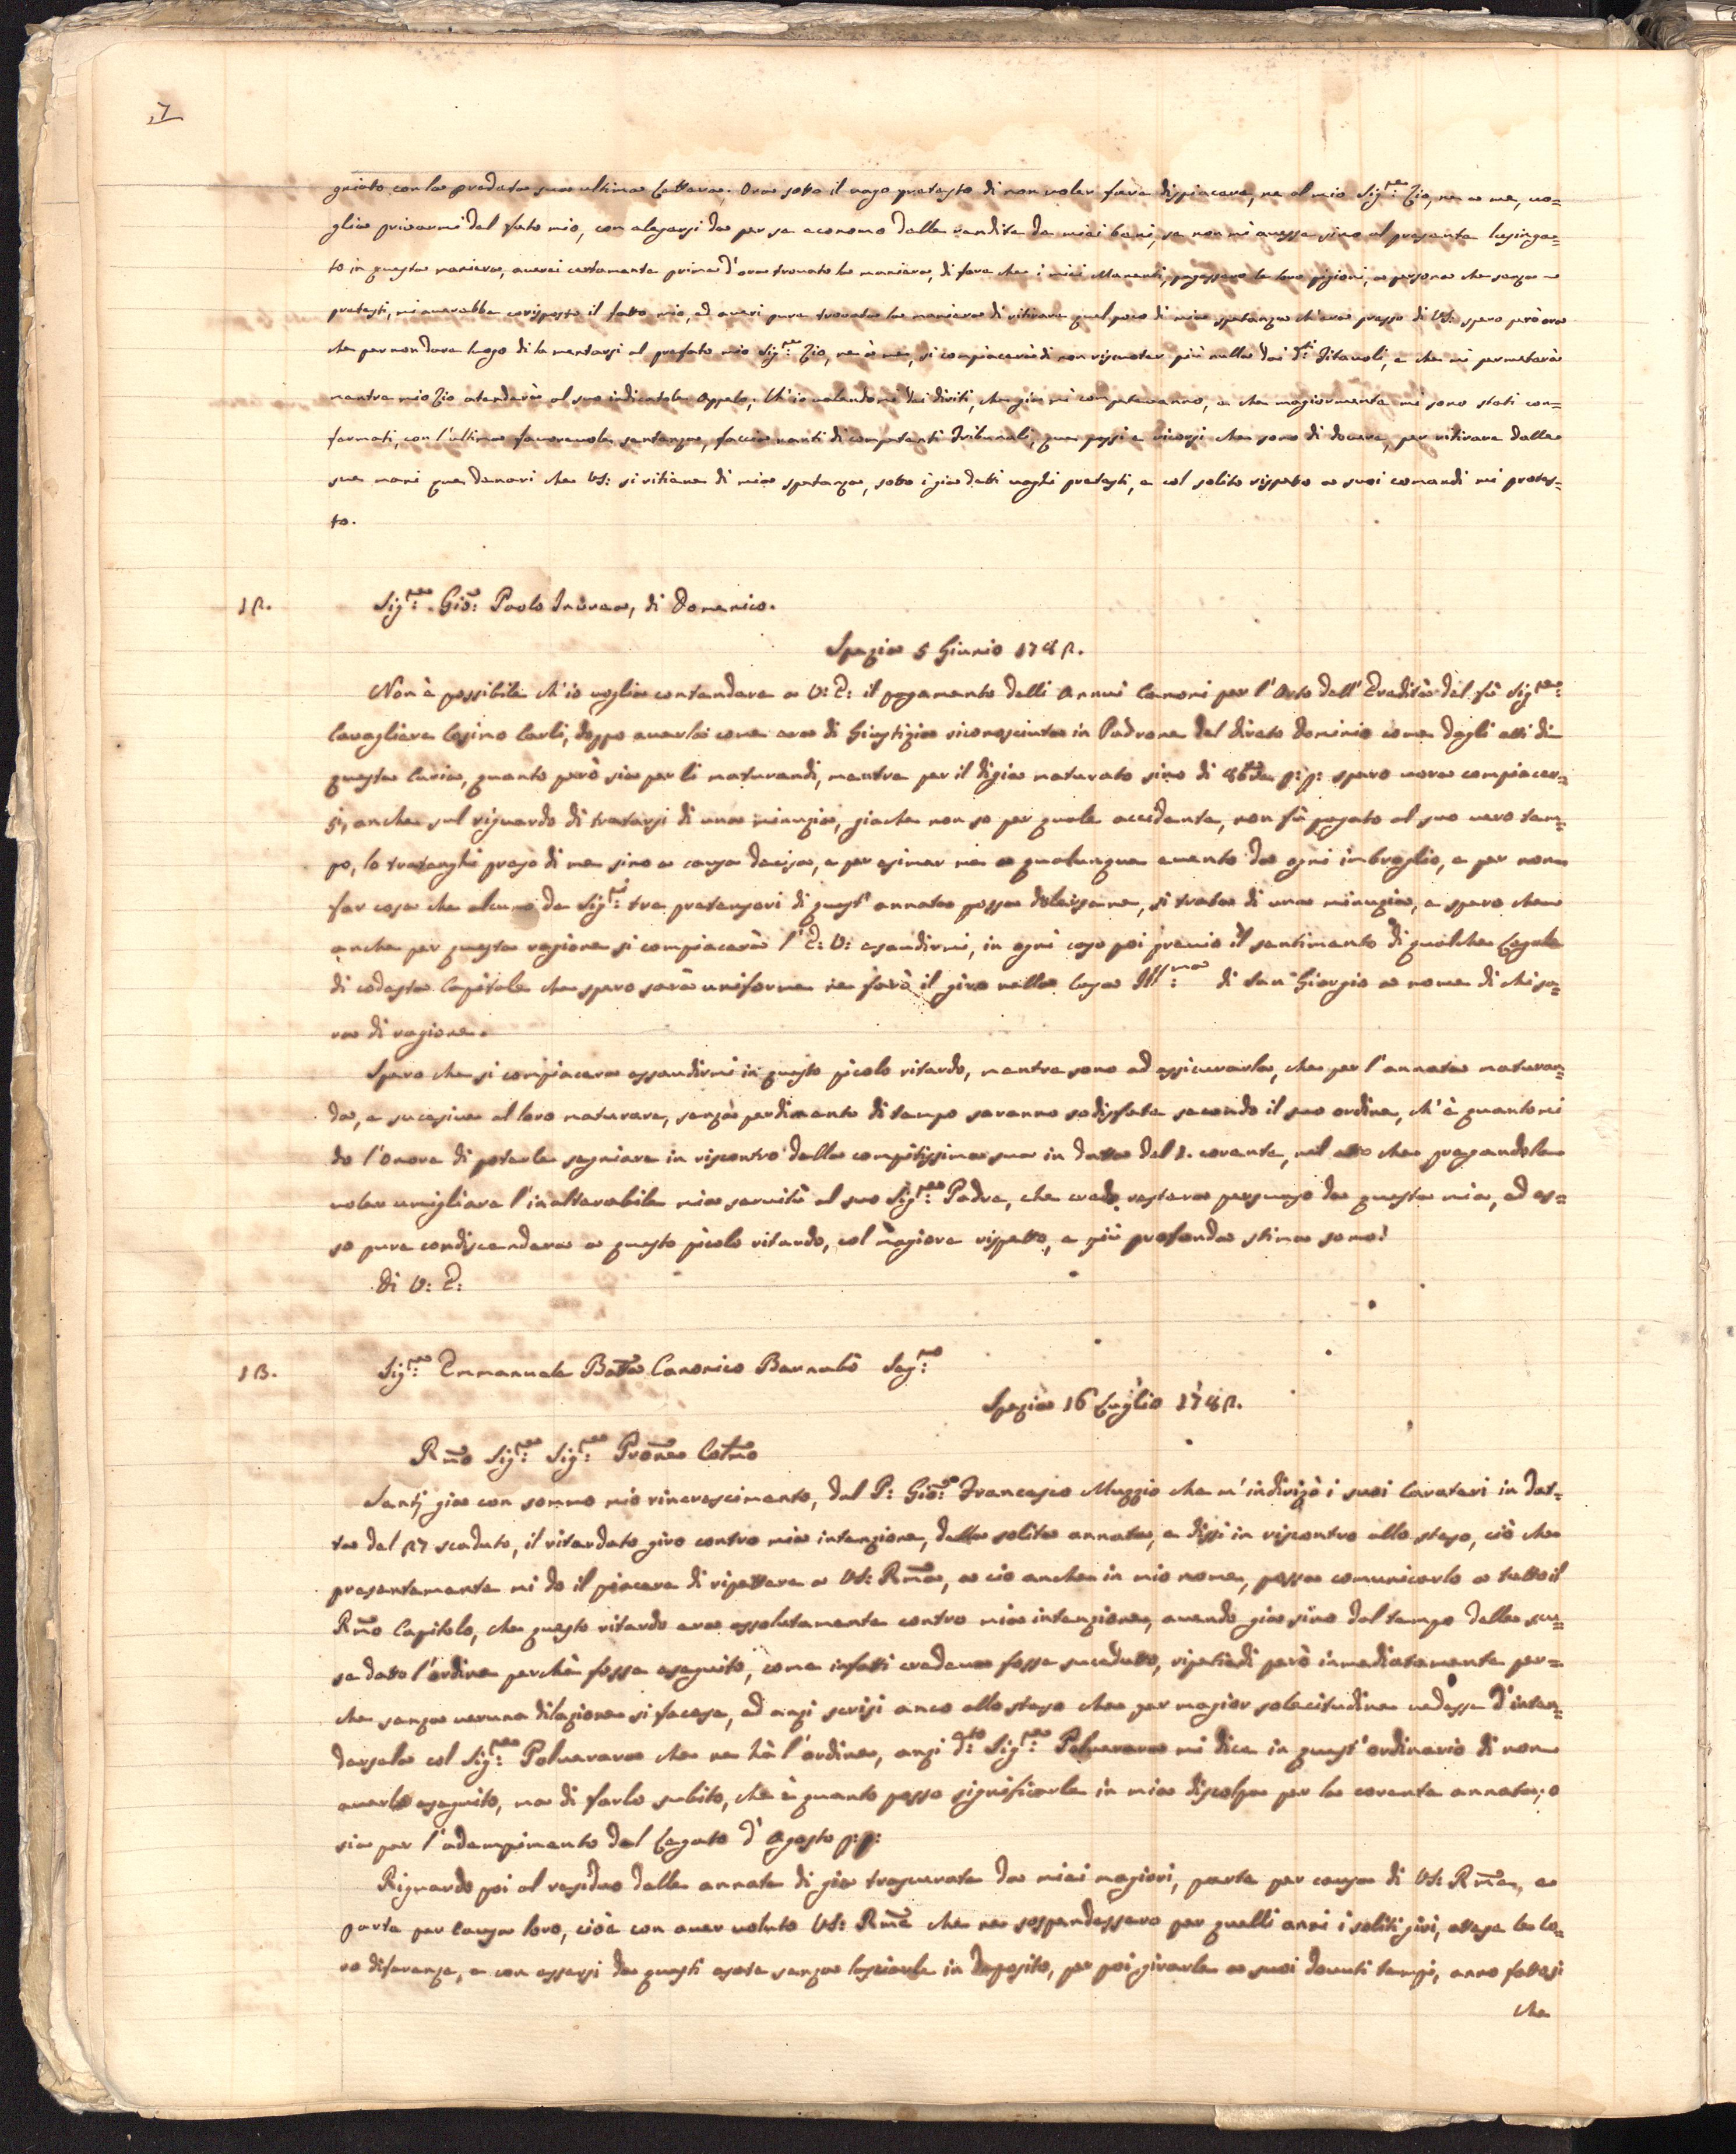 7
gnioto con la predeta sua ultima Lettera. Ora sotto il vago pretesto di non voler fare dispiacere, ne al mio Sig:re Zio, ne a me, vo=
glia privarmi del fato mio, con elegersi da per se economo delle rendite de miei beni, se non mi avesse sino al presente lusinga=
to in questa maniera, averei certamente prima d'ora trovato la maniera, di fare che i miei Manenti, pagassero le loro pigioni, a persona che senza
pretesti, mi averebbe corisposto il fatto mio, ed averi pure trovato la maniera di ritirare quel poco di mia spetanza ch'era presso di VS: spero però ora
che per non dare luogo di lamentarsi al prefato mio Sig:re Zio, ne à me, si compiacerà di non riscuoter più nulla dai d:ti Fitavoli, e che mi permeterà
mentre mio Zio atenderà al suo indicatole Appelo, ch'io valendomi dei diriti, che già mi competevanno, e che magiormente mi sono stati con=
fermati, con l'ultima favorevole sentenza, faccia nanti di competenti Tribunali, que passi e ricorsi che sono di dovere, per ritirare dalle
sue mani que denari che VS: si ritiene di mia spetanza, sotto i gia detti vaghi pretesti, e col solito rispetto a suoi comandi mi protes=
to.
12. Sig:re Gio: Paolo Inurea, di Domenico.
Spezia 5 Giunio 1782.
Non è possibile ch'io voglia contendere a V: E: il pagamento delli Annui Canoni per l'Orto dell'Eredità del fù Sig:re
Cavagliere Cosimo Carli, doppo averla come era di Giustizia riconosciuta in Padrone del direto dominio come dagli atti di
questa Curia, quanto però sia per li maturandi, mentre per il digia maturato sino di 8bre p: p: spero vorà compiacer=
si, anche sul riguardo di tratarsi di una minuzia, giache non so per quale accidente, non fù pagato al suo vero tem=
po, lo tratenghi preso di me sino a causa decisa, e per esimer me a qualunque evento da ogni imbroglio, e per non
far cosa che alcuno de Sig:ri tre pretensori di quest'annata possa dolersene, si trata di una minuzia, e spero che
anche per questa ragione si compiacerà l'E: V: esaudirmi, in ogni caso poi previo il sentimento di qualche Legale
di codesta Capitale che spero sarà uniforme ne farò il giro nella Casa Ill:ma di San Giorgio a nome di chi sa=
ra di ragione.
Spero che si compiacera essaudirmi in questo picolo ritardo, mentre sono ad assicurarla, che per l'annata maturan=
da, e sucesive al loro maturare, senza perdimento di tempo saranno sodisfate secondo il suo ordine, ch'è quanto mi
do l'onore di poterle segniare in riscontro della compitissima sua in data del 1. corente, nel atto che pregandola
voler umigliare l'inalterabile mia servitù al suo Sig:re Padre, che credo restara persuaso da questa mia, ed es=
so pure condiscendera a questo picolo ritardo, col magiore rispetto, e più profonda stima sono!
Di V: E:
13. Sig:re Emmanuele Bat:a Canonico Barnabò Seg:rio
Spezia 16 Luglio 1782.
Rmo Sig:re Sig:re Prone Colmo
Sentj gia con sommo mio rincrescimento, dal P: Gio: Francesco Muzzio che m'indirizò i suoi Carateri in dat=
ta del 27 scaduto, il ritardato giro contro mia intenzione, della solita annata, e dissi in riscontro allo steso, ciò che
presentamente mi do il piacere di ripettere a VS: Rma, a cio anche in mio nome, possa comunicarlo a tutto il
Rmo Capitolo, che questo ritardo era assolutamente contro mia intenzione, avendo già sino dal tempo della scu=
sa dato l'ordine perchè fosse eseguito, come infatti credeva fosse suceduto, ripetiedi però inmediatamente per=
che senza veruna dilazione si facesse, ed anzi scrissi anco allo steso che per magior solecitudine vedesse d'inten=
dersela col Sig:re Polverara che ne hà l'ordine, anzi d:to Sig:re Polverara mi dice in quest'ordinario di non
averlo eseguito, ma di farlo subito, che è quanto posso significarle in mia discolpa per la corente annata, o
sia per l'adempimento del Legato d'Agosto p:p:
Riguardo poi al residuo delle annate di gia trascurate da miei magiori, parte per causa di VS: Rme, e
parte per causa loro, cioè con aver voluto VS: Rme che ne sospendessero per quelli anni i soliti giri, attese le lo=
ro diferenze, e con essersi da questi esate senza lasciarle in deposito, per poi girarle a suoi dovuti tempi, anno fattesi
che